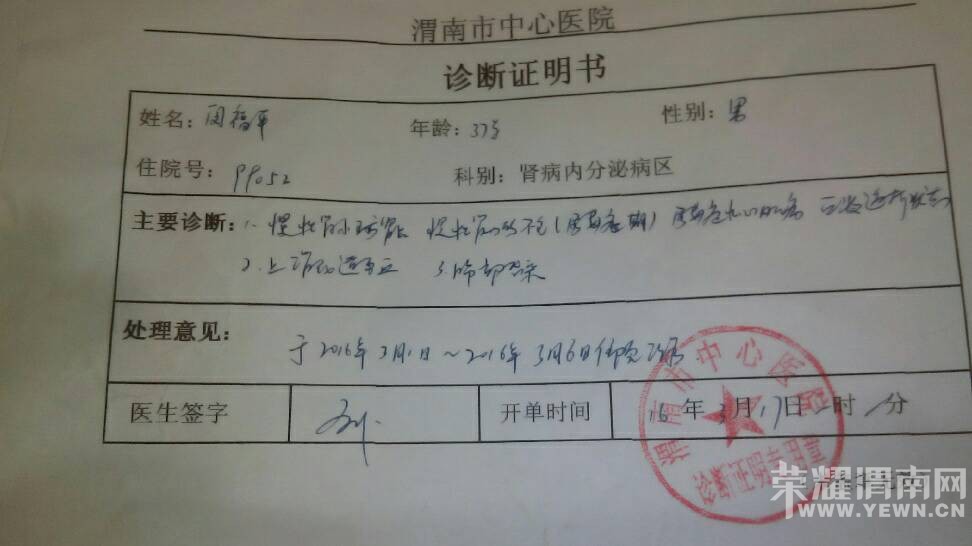 渭南市中心医院
诊断证明书
姓名: 年龄: 37岁 性别: 男
住院号: 99052 科别: 肾病内分泌病区
主要诊断: 1. 慢性肾小球肾炎 慢性肾功能不全(尿毒症期) 尿毒症性心肌病
2. 上消化道出血 3. 肺部感染
处理意见:
于2016年3月1日~2016年3月6日住院治疗
医生签字 开单时间 16年3月17日 时 分
渭南市中心医院
荣耀渭南网
WWW.YEWN.CN